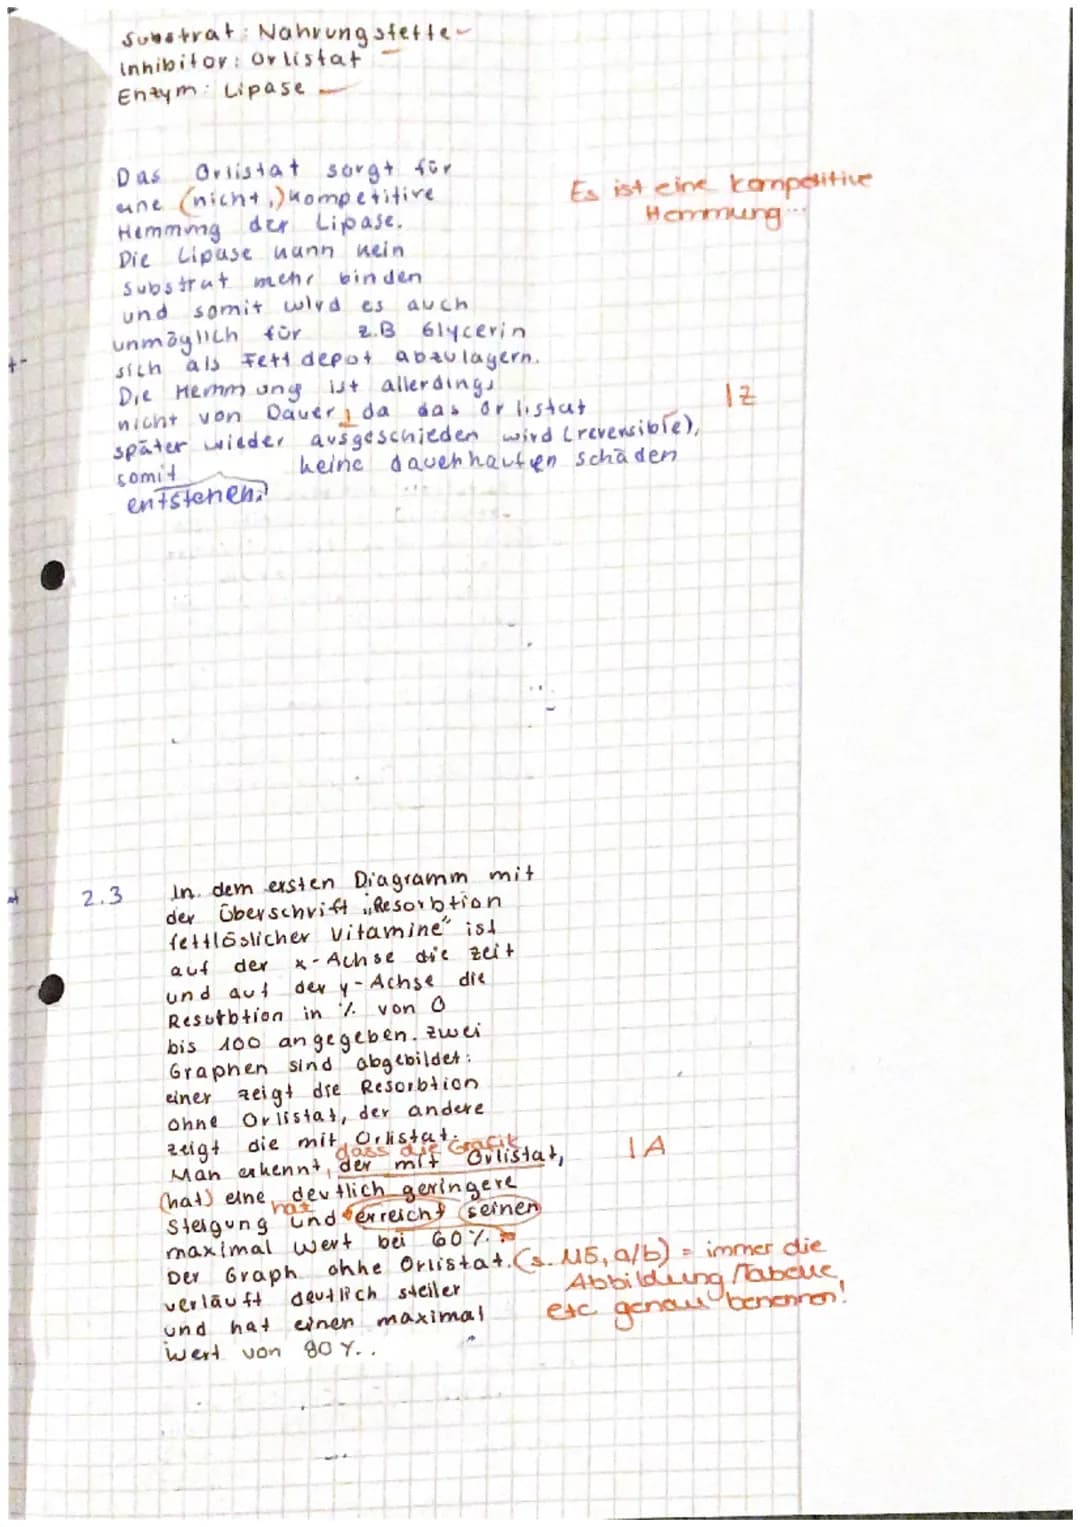 Substrat: Nahrungsfette
Inhibitor: Orlistat
Enzym: Lipase
Das Orlistat sorgt für
eine (nicht,) kompetitive
Es ist eine kompetitive
Hemmung...
Hemmung der Lipase.
Die Lipase kann kein
Substrat mehr binden
und somit wird es auch
unmöglich für z.B Glycerin
sich als Fettdepot abzulagern.
Die Hemmung ist allerdings
nicht von Dauer, da das Orlistat
1Z
später wieder ausgeschieden wird (reversible),
somit keine dauerhaften schäden
entstehen.
2.3 In dem ersten Diagramm mit
der Überschrift „Resorbtion
fettlöslicher Vitamine" ist
auf der x-Achse die Zeit
und auf der y-Achse die
Resorbtion in % von 0
bis 100 angegeben. Zwei
Graphen sind abgebildet:
einer zeigt die Resorbtion
ohne Orlistat, der andere
zeigt die mit Orlistat.
dass die Grafik
Man erkennt, der mit Orlistat,
1A
(hat) eine deutlich geringere
hat
Steigung und erreicht seinen
maximal Wert bei 60%.
Der Graph ohne Orlistat. (s. M5, a/b) = immer die
Abbildung/Tabelle,
etc genau benennen!
verläuft deutlich steiler
und hat einen maximal
Wert von 80 %..